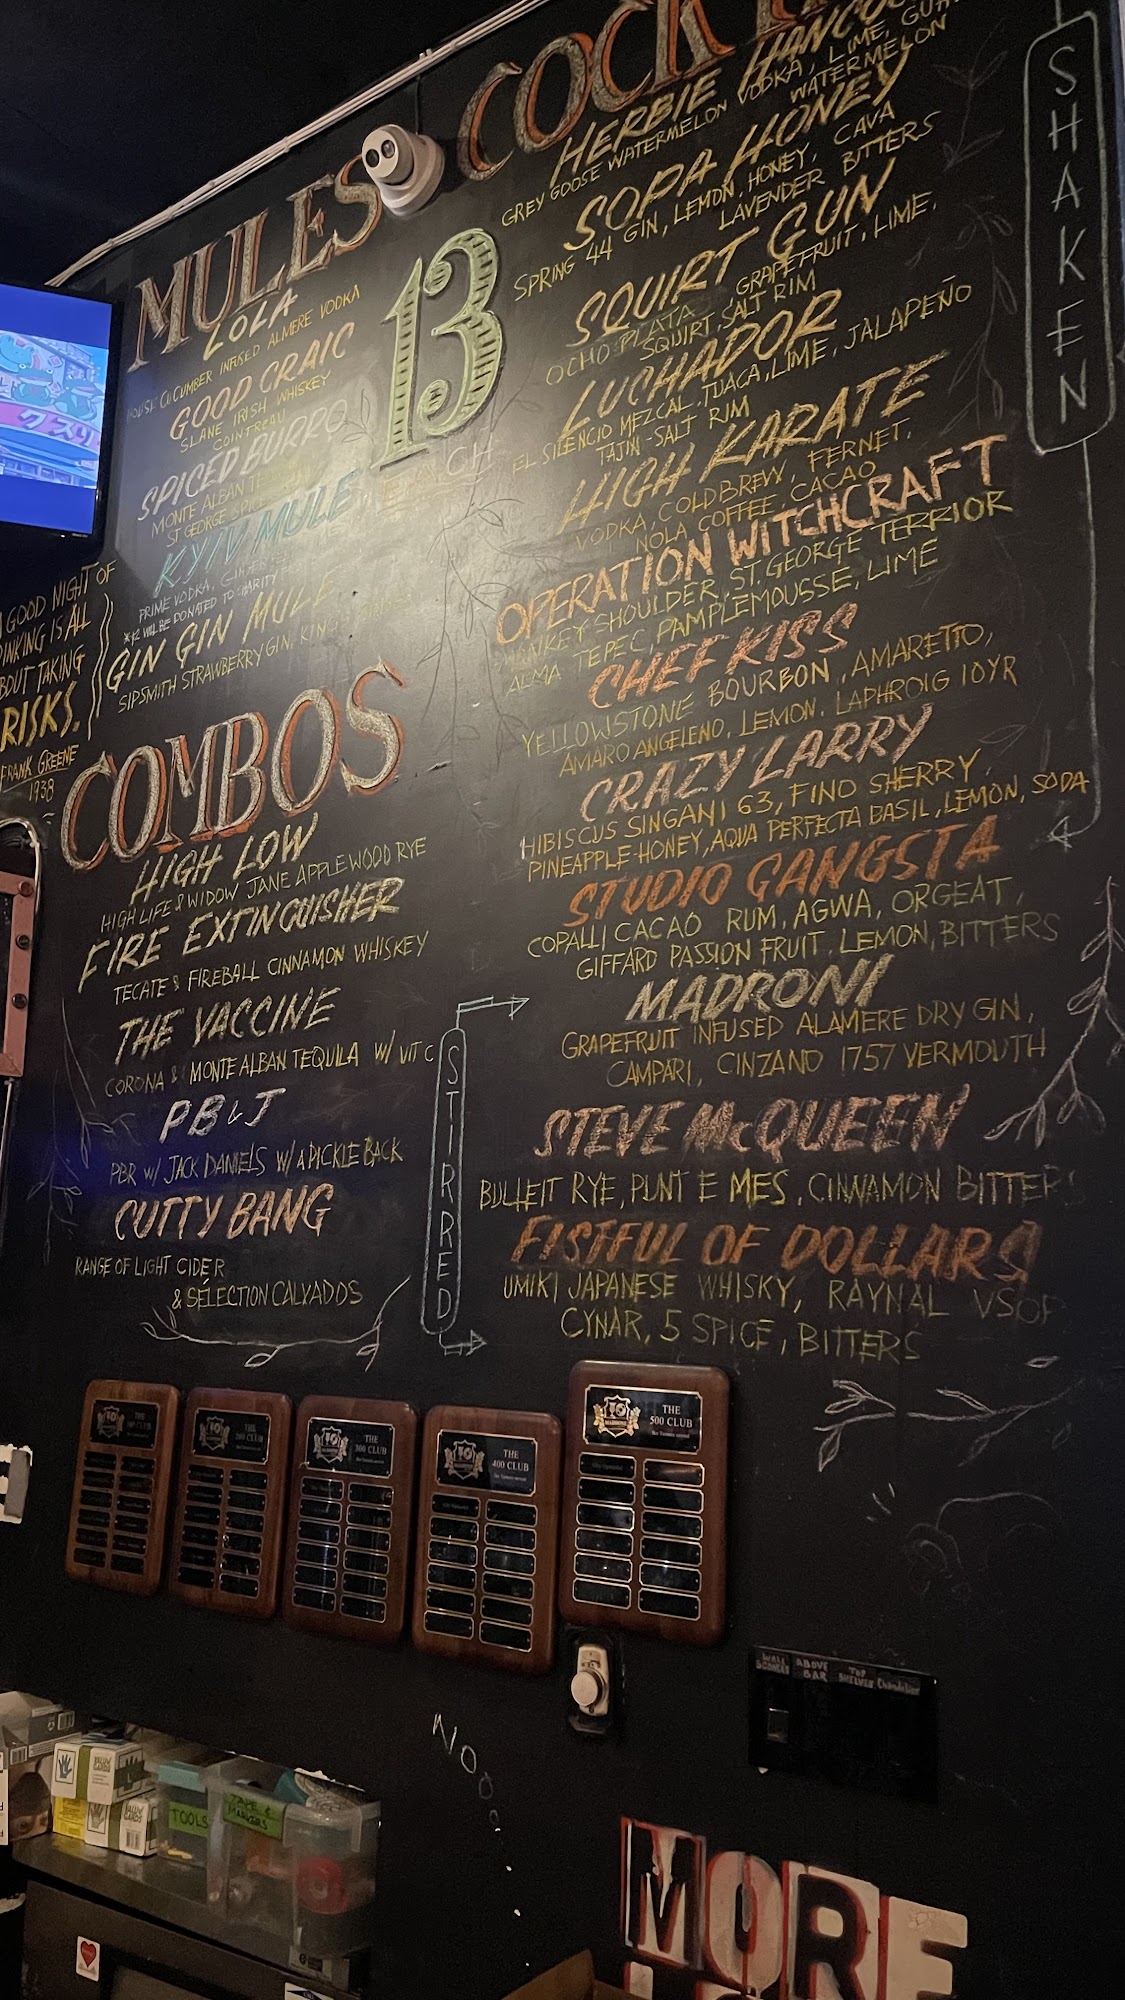 MULES
LOLA
HOUSE CUCUMBER INFUSED ALMERE VODKA
GOOD CRAIC
SLANE IRISH WHISKEY
COINTREAU
SPICED BURRO
MONTE ALBAN
ST GEORGE SPICED
KYIV MULE
PRIME VODKA, GINGER
*$2 WILL BE DONATED TO CHARITY
GIN GIN MULE
SIPSMITH STRAWBERRY GIN, KING
13
EACH
A GOOD NIGHT OF
DRINKING IS ALL
ABOUT TAKING
RISKS.
FRANK GREENE
1938
COMBOS
HIGH LOW
HIGH LIFE & WIDOW JANE APPLEWOOD RYE
FIRE EXTINGUISHER
TECATE & FIREBALL CINNAMON WHISKEY
THE VACCINE
CORONA & MONTE ALBAN TEQUILA W/ VIT C
PB&J
PBR W/ JACK DANIELS W/ A PICKLE BACK
CUTTY BANG
RANGE OF LIGHT CIDER
& SÉLECTION CALVADOS
HERBIE HANCO
GREY GOOSE WATERMELON VODKA, LIME,
WATERMELON
SOPA HONEY
SPRING '44 GIN, LEMON, HONEY, CAVA
LAVENDER BITTERS
SQUIRT GUN
OCHO PLATA, GRAPEFRUIT, LIME,
SQUIRT, SALT RIM
LUCHADOR
EL SILENCIO MEZCAL, TUACA, LIME, JALAPEÑO
TAJIN-SALT RIM
HIGH KARATE
VODKA, COLD BREW, FERNET,
NOLA COFFEE, CACAO
OPERATION WITCHCRAFT
MONKEY SHOULDER, ST. GEORGE TERRIOR
ALMA TEPEC, PAMPLEMOUSSE, LIME
CHEF KISS
YELLOWSTONE BOURBON, AMARETTO,
AMARO ANGELENO, LEMON, LAPHROIG 10YR
CRAZY LARRY
HIBISCUS SINGANI 63, FINO SHERRY,
PINEAPPLE-HONEY, AQUA PERFECTA BASIL, LEMON, SODA
STUDIO GANGSTA
COPALLI CACAO RUM, AGWA, ORGEAT,
GIFFARD PASSION FRUIT, LEMON, BITTERS
SHAKEN
STIRRED
MADRONI
GRAPEFRUIT INFUSED ALAMERE DRY GIN,
CAMPARI, CINZANO 1757 VERMOUTH
STEVE McQUEEN
BULLEIT RYE, PUNT E MES, CINNAMON BITTERS
FISTFUL OF DOLLARS
UMIKI JAPANESE WHISKY, RAYNAL VSOP
CYNAR, 5 SPICE, BITTERS
THE
100 CLUB
THE
200 CLUB
THE
300 CLUB
THE
400 CLUB
THE
500 CLUB
WALL
SCONCES
ABOVE
BAR
TOP
SHELVES
Chandelier
NOO
TOOLS
TAPE &
MARKERS
MORE